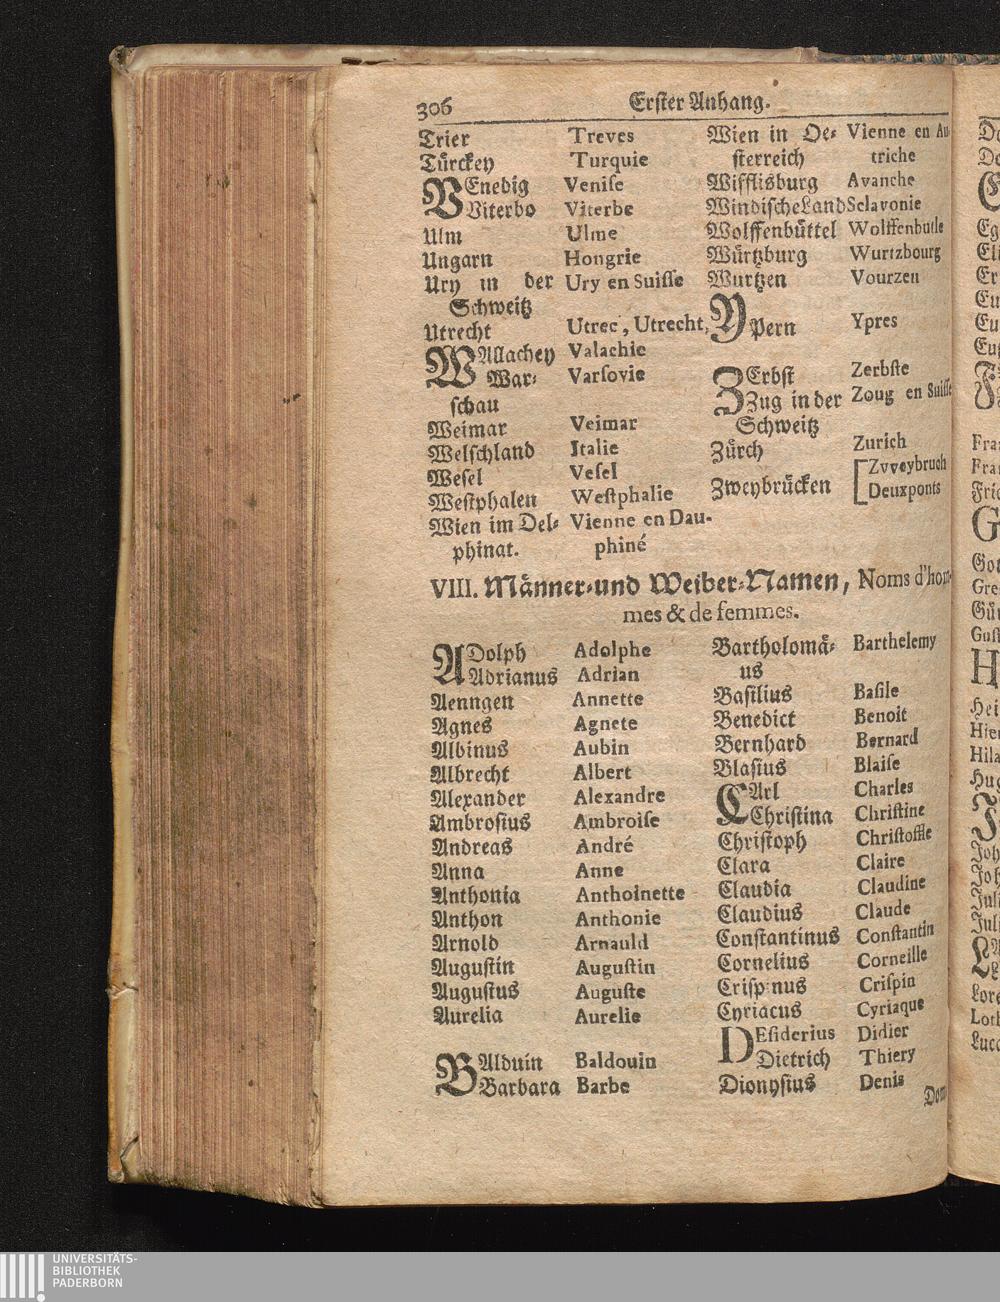 306 Erster Anhang.
Trier Treves
Türckey Turquie
VEnedig Veniſe
Viterbo Viterbe
Ulm Ulme
Ungarn Hongrie
Ury in der Ury en Suiſſe
Schweitz
Utrecht Utrec, Utrecht,
WAllachey Valachie
War- Varſovie
ſchau
Weimar Veimar
Welſchland Italie
Weſel Veſel
Weſtphalen Weſtphalie
Wien im Del- Vienne en Dau-
phinat. phiné
Wien in Oe- Vienne en Au
ſterreich triche
Wifflisburg Avanche
WindiſcheLand Sclavonie
Wolffenbüttel Wolffenbutle
Würtzburg Wurtzbourg
Wurtzen Vourzen
YPern Ypres
ZErbſt Zerbſte
Zug in der Zoug en Suiſſe
Schweitz
Zürch Zurich
Zweybrücken [Zvveybruch
Deuxponts
VIII. Männer-und Weiber-Namen, Noms d'hom-
mes & de femmes.
ADolph Adolphe
Adrianus Adrian
Aenngen Annette
Agnes Agnete
Albinus Aubin
Albrecht Albert
Alexander Alexandre
Ambroſius Ambroiſe
Andreas André
Anna Anne
Anthonia Anthoinette
Anthon Anthonie
Arnold Arnauld
Auguſtin Auguſtin
Auguſtus Auguſte
Aurelia Aurelie
BAlduin Baldouin
Barbara Barbe
Bartholomä- Barthelemy
us
Baſilius Baſile
Benedict Benoit
Bernhard Bernard
Blaſius Blaiſe
CArl Charles
Chriſtina Chriſtine
Chriſtoph Chriſtoffle
Clara Claire
Claudia Claudine
Claudius Claude
Conſtantinus Conſtantin
Cornelius Corneille
Criſpinus Criſpin
Cyriacus Cyriaque
DEſiderius Didier
Dietrich Thiery
Dionyſius Denis
Dom
UNIVERSITÄTS-
BIBLIOTHEK
PADERBORN